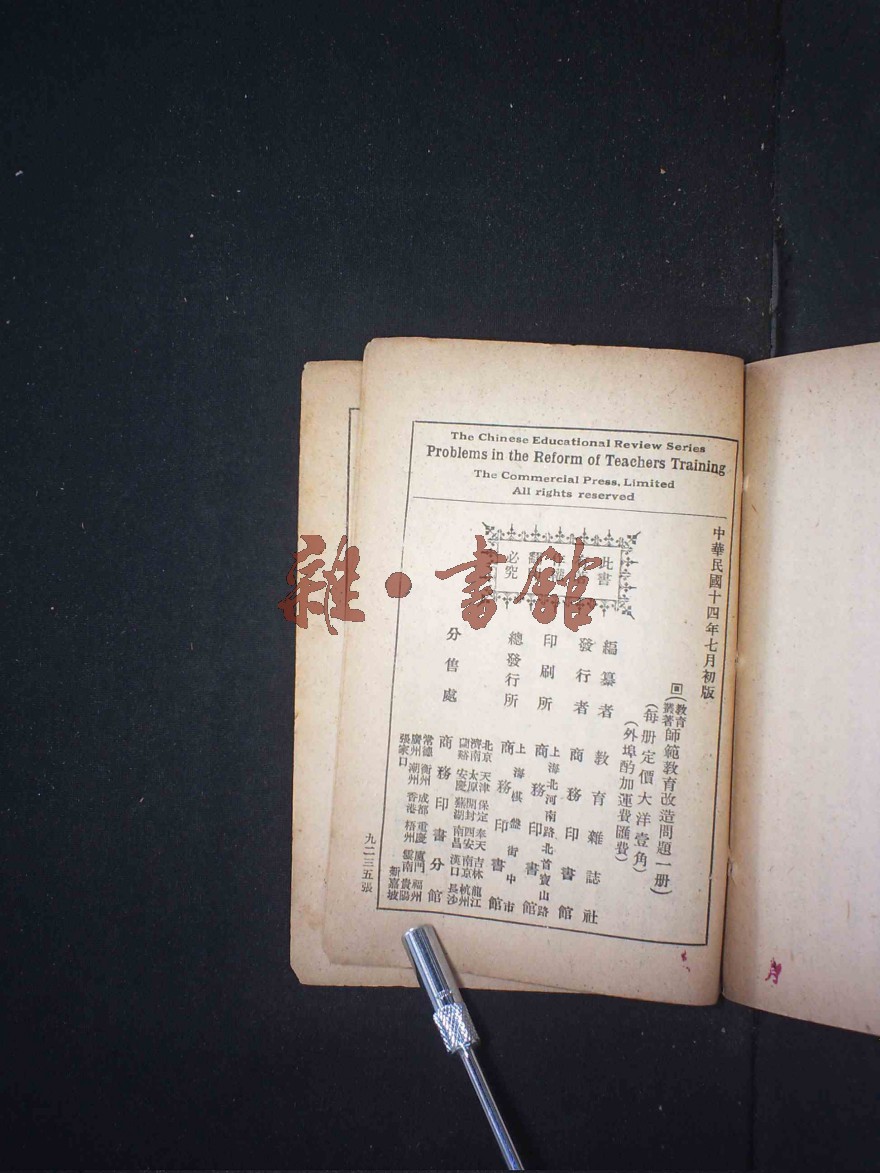 The Chinese Educational Review Series
Problems in the Reform of Teachers Training
The Commercial Press, Limited
All rights reserved
中華民國十四年七月初版
(教育叢著師範教育改造問題一册)
(每册定價大洋壹角)
(外埠酌加運費匯費)
此書
必究
編纂者 教育雜誌社
發行者 商務印書館
印刷所 上海北河南路北首寶山路 商務印書館
總發行所 上海棋盤街中市 商務印書館
分售處 商務印書分館
北京 天津 保定 奉天 吉林 龍江
濟南 太原 開封 西安 南京 杭州
蘭谿 安慶 蕪湖 南昌 漢口 長沙
常德 衡州 成都 重慶 廈門 福州
廣州 潮州 香港 梧州 雲南 貴陽
張家口 新嘉坡
九二三五張
雜·書館